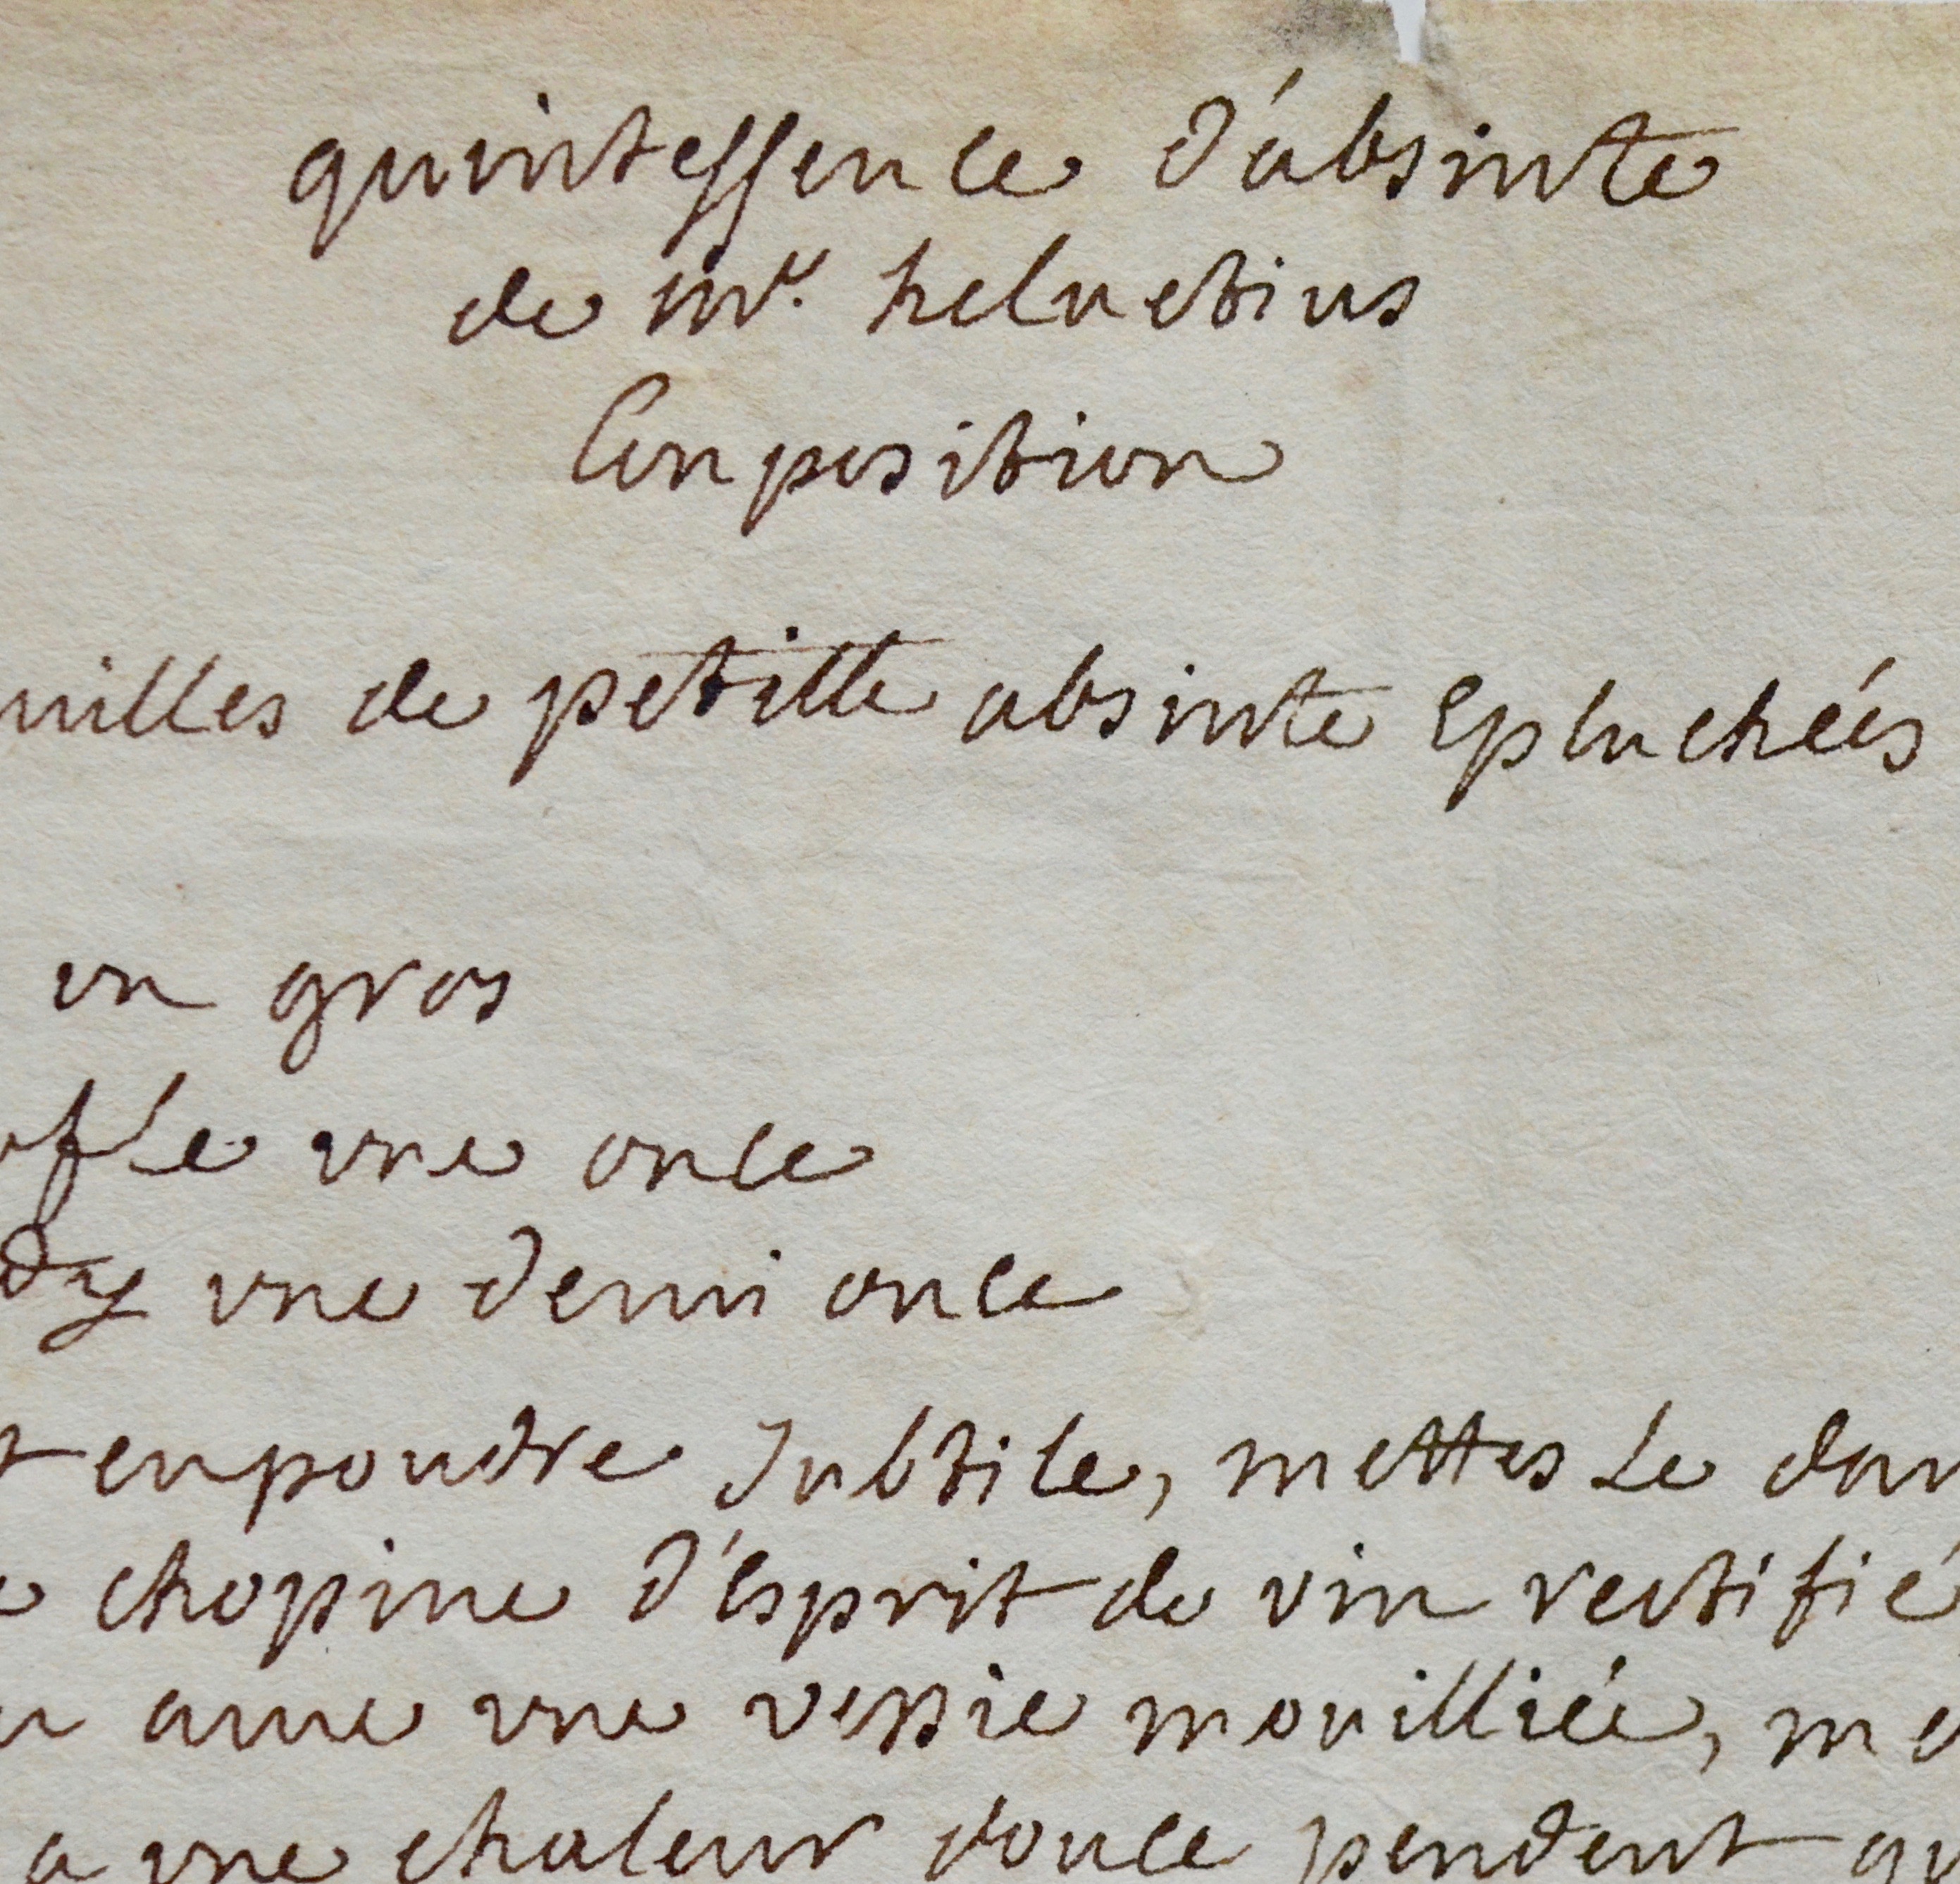 quintessence d'absinte
de mr. helvetius
Conposition
uilles de petitte absinte Epluchéés
un gros
ofle une once
une demi once
t enpoudre Subtile, mettes Le dan
chopine d'Esprit de vin rectifié
avec une vessie mouilliée, me
a une chaleur douce pendent qu